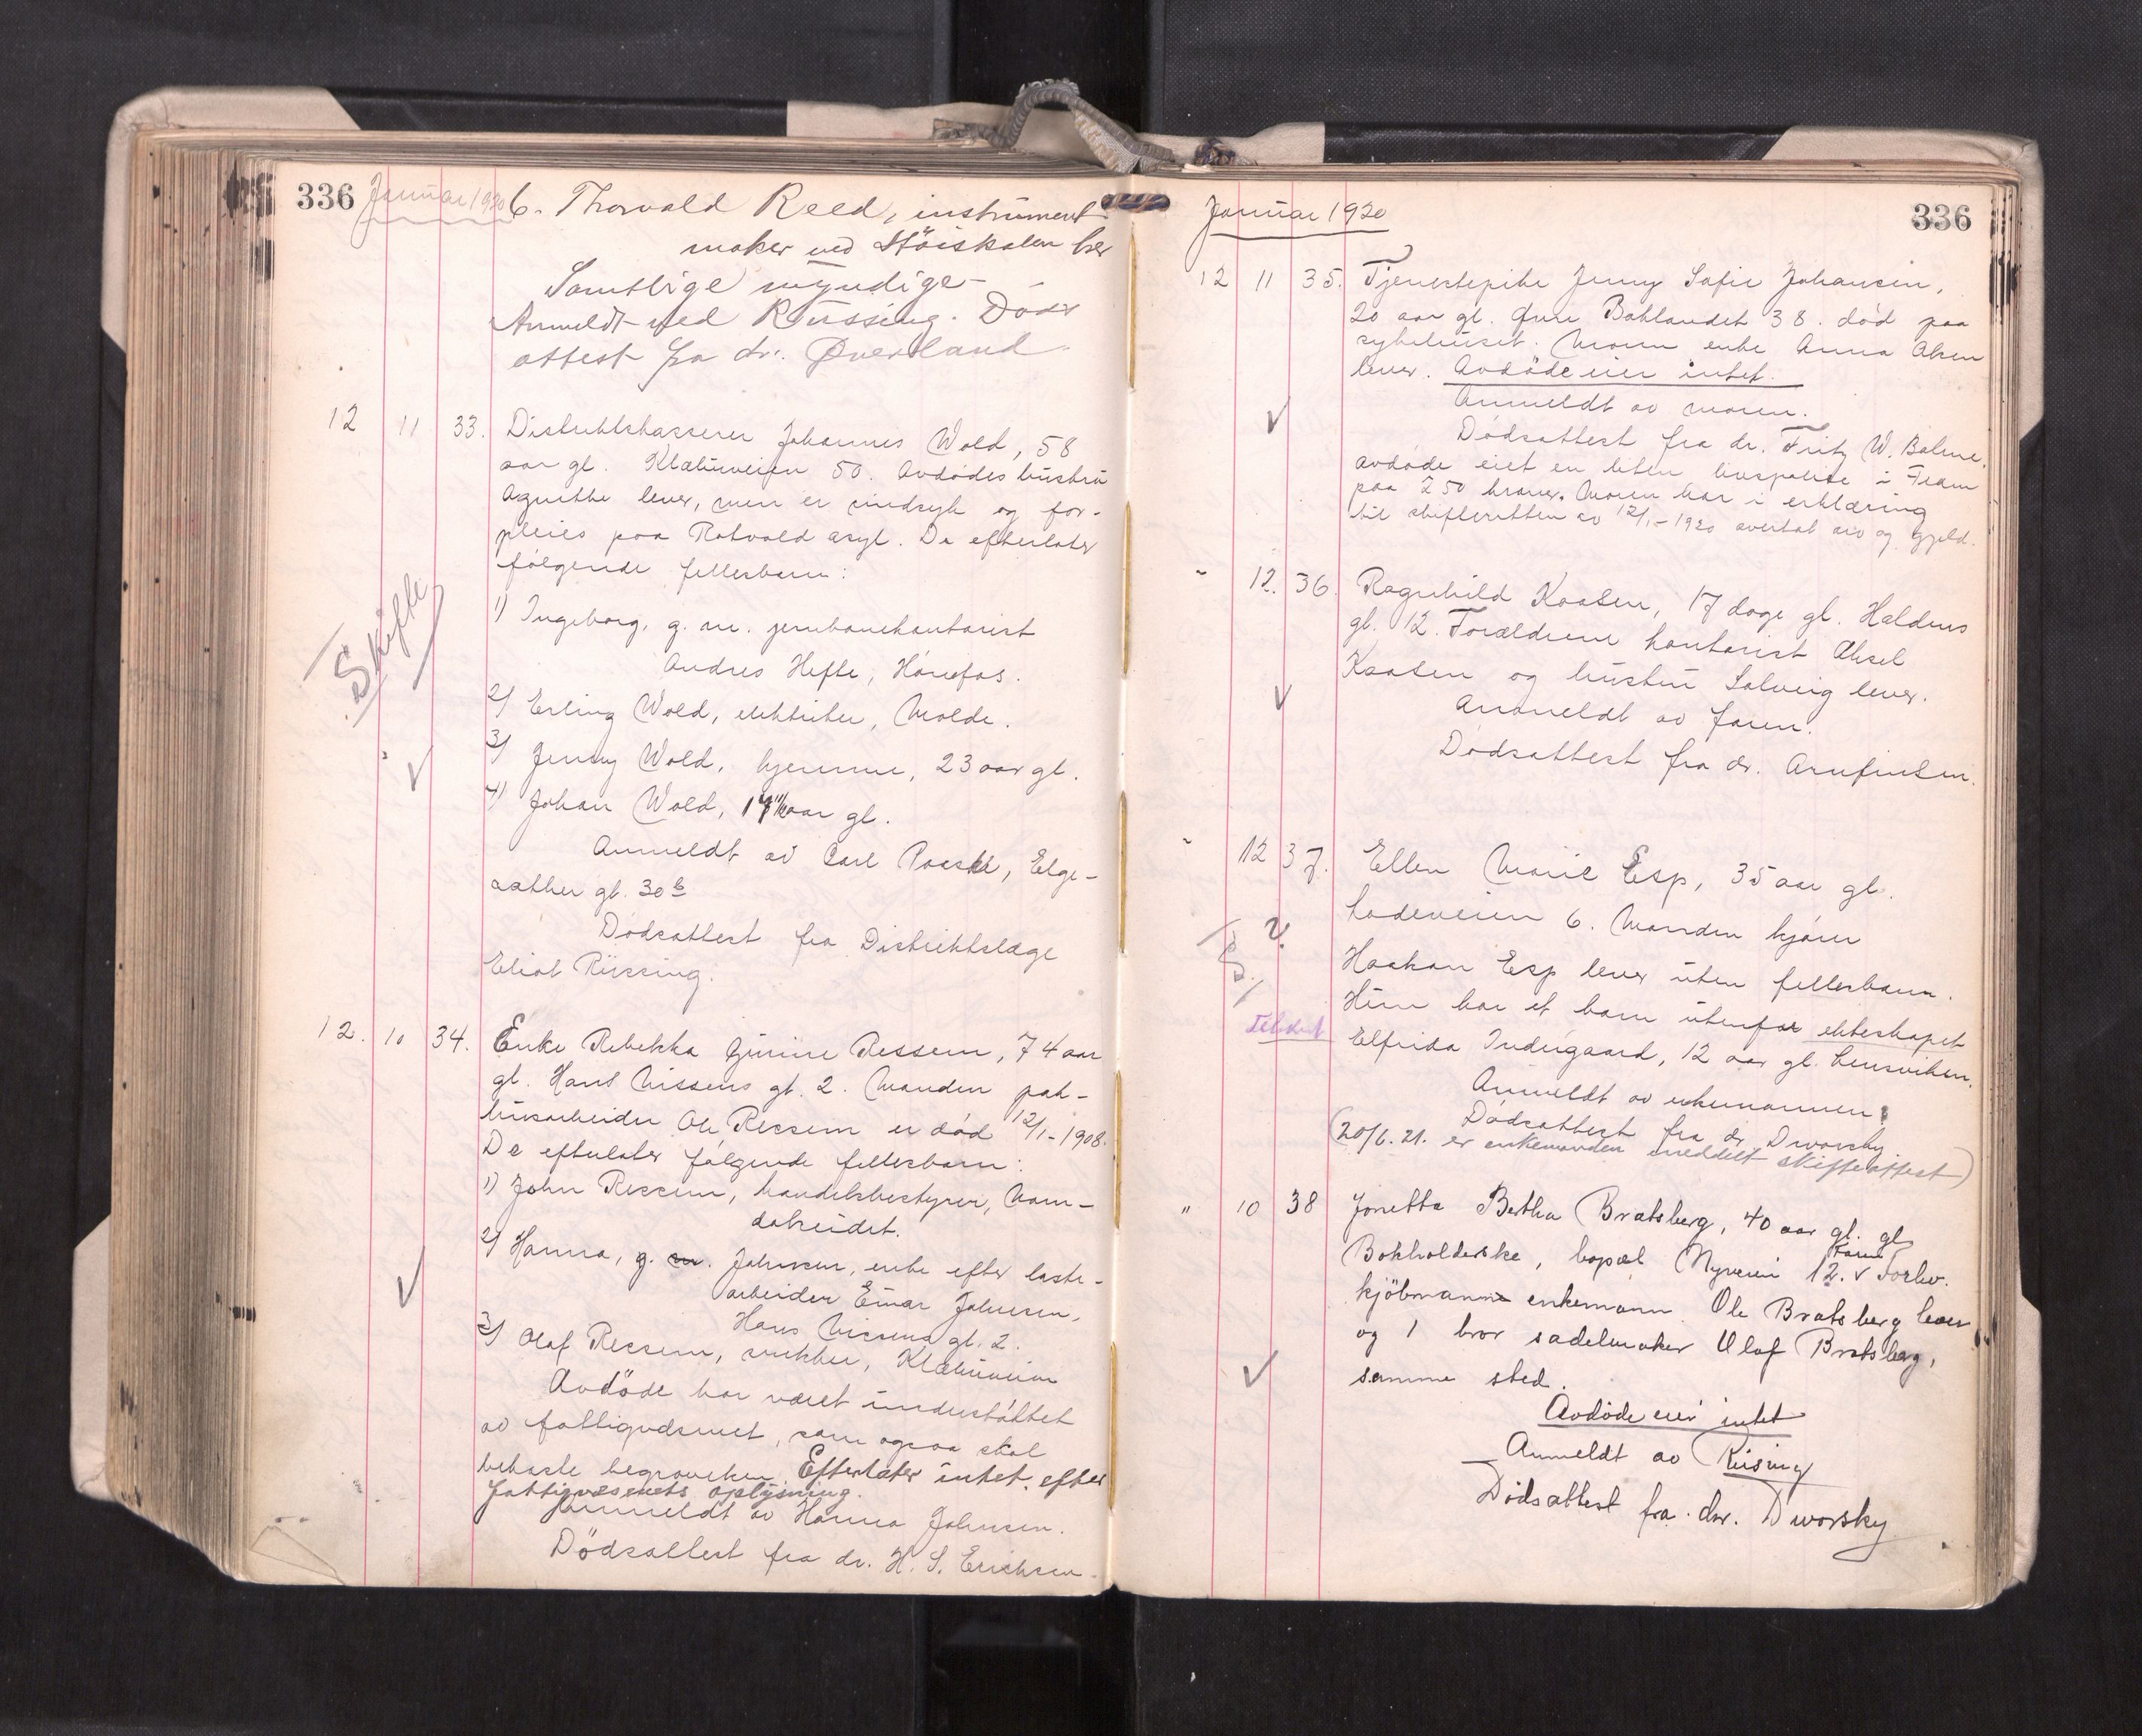 336 Januar 1920 6. Thorvald Reed, instrument
maker ved Höiskolen her
Samtlige myndige -
Anmeldt ved Rüssing. Döds
attest fra dr. Øverland.
12 11 33. Distriktskasserer Johannes Wold, 58
aar gl. Klæbuveien 50. Avdödes hustru
Agnethe lever, men er sindsyk og for-
pleies paa Rotvold asyl. De efterlater
følgende fellesbarn:
Skifte
1) Ingeborg, g. m. jernbanekontorist
Andres Hefte, Hönefos.
2) Erling Wold, elektriker, Molde.
3) Jenny Wold, hjemme, 23 aar gl.
4) Johan Wold, 17 aar gl.
Anmeldt av Carl Paaske, Elge-
sæther gt. 30 b
Dödsattest fra Distriktslæge
Eliat Rüssing.
12. 10 34. Enke Rebekka Gurine Ressem, 74 aar
gl. Hans Nissens gt. 2. Manden pak-
husarbeider Ole Ressem er död 12/1-1908.
De efterlater fölgende fellesbarn:
1) John Ressem, handelsbestyrer, Nam-
daleidet.
2) Hanna, g. m. Johnsen, enke efter laste-
arbeider Einar Johnsen,
Hans Nissens gt. 2.
3) Olaf Ressem, snekker, Klæbuveien
Avdöde har været understöttet
av fattigvæsenet, som ogsaa skal
bekoste begravelsen. Efterlater intet efter
Fattigvæsenets oplysning.
Anmeldt av Hanna Johnsen.
Dödsattest fra dr. H. S. Erichsen.
Januar 1920 336
12 11 35. Tjenestepike Jenny Sofie Johansen,
20 aar gl. Øvre Baklandet 38. död paa
sykehuset. Moren enke Anna Olsen
lever. Avdöde eier intet.
Anmeldt av moren.
Dödsattest fra dr. Fritz W. Bolme.
Avdöde eiet en liten livspolise i Fram
paa 250 kroner. Moren har i erklæring
til skifteretten av 12/1-1920 overtat arv og gjeld.
" 12. 36. Ragnhild Kaasen, 17 dage gl. Haldens
gt. 12. Forældrene kontorist Aksel
Kaasen og hustru Solveig lever.
Anmeldt av faren.
Dödsattest fra dr. Arnfinsen.
" 12 37. Ellen Marie Esp, 35 aar gl.
Ladeveien 6. Manden kjörer
Haakon Esp lever uten fellesbarn.
Hun har et barn utenfor ekteskapet
Elfrida Indergaard, 12 aar gl. Lensviken.
Anmeldt av enkemannen.
Dödsattest fra dr. Dworsky.
(20/6.21. er enkemanden meddelt skifteattest)
" 10 38 Jonetta Bertha Bratsberg, 40 aar gl. gl.
Bokholderske, bopæl Nyveien 12. v Faren Forhv.
kjöbmann enkemann Ole Bratsberg lever
og 1 bror sadelmaker Olaf Bratsberg,
samme sted.
Avdöde eier intet
Anmeldt av Rüsing
Dödsattest fra dr. Dworsky